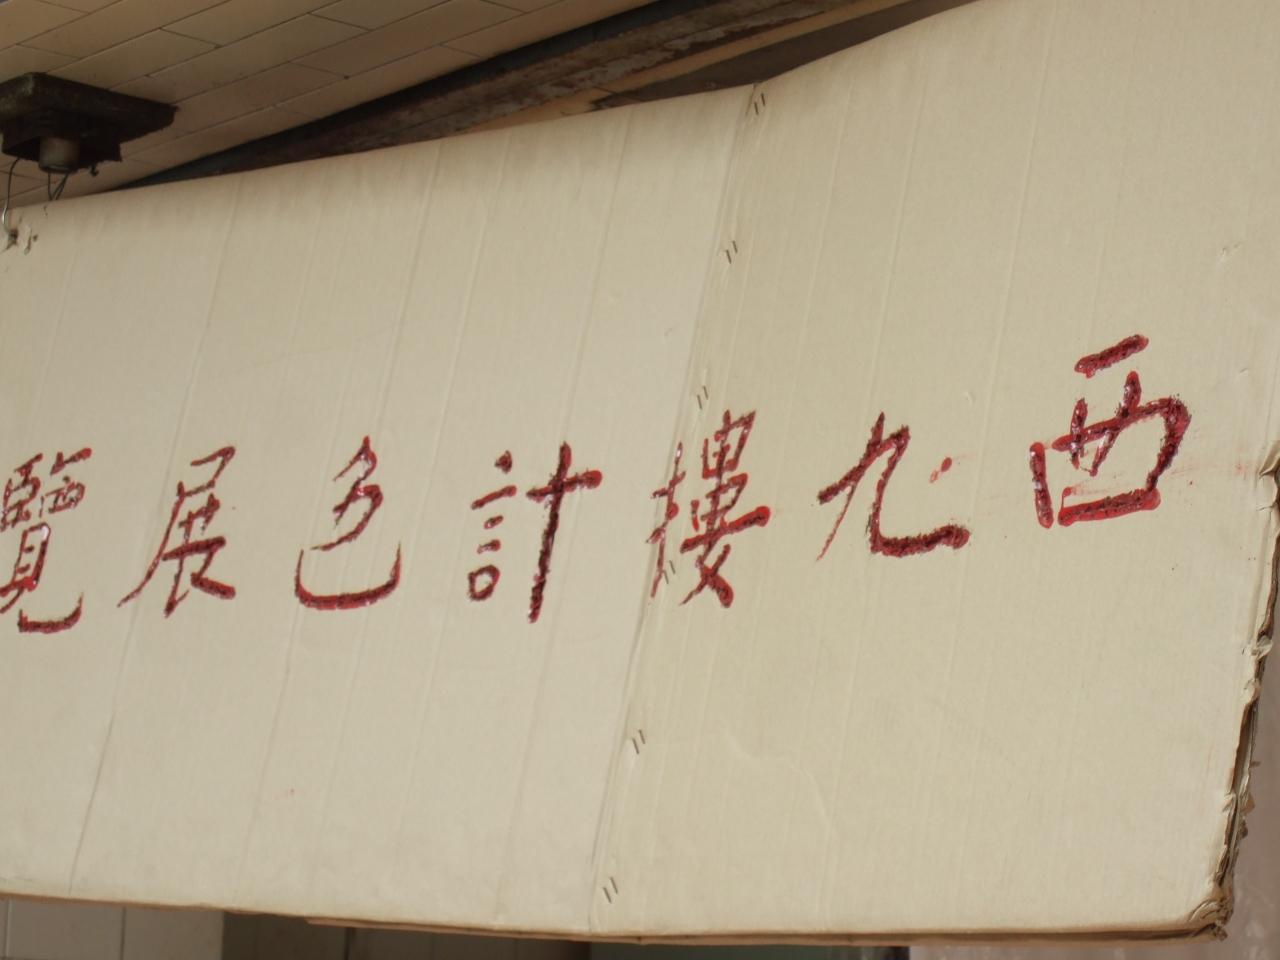 西九摟計色展覽